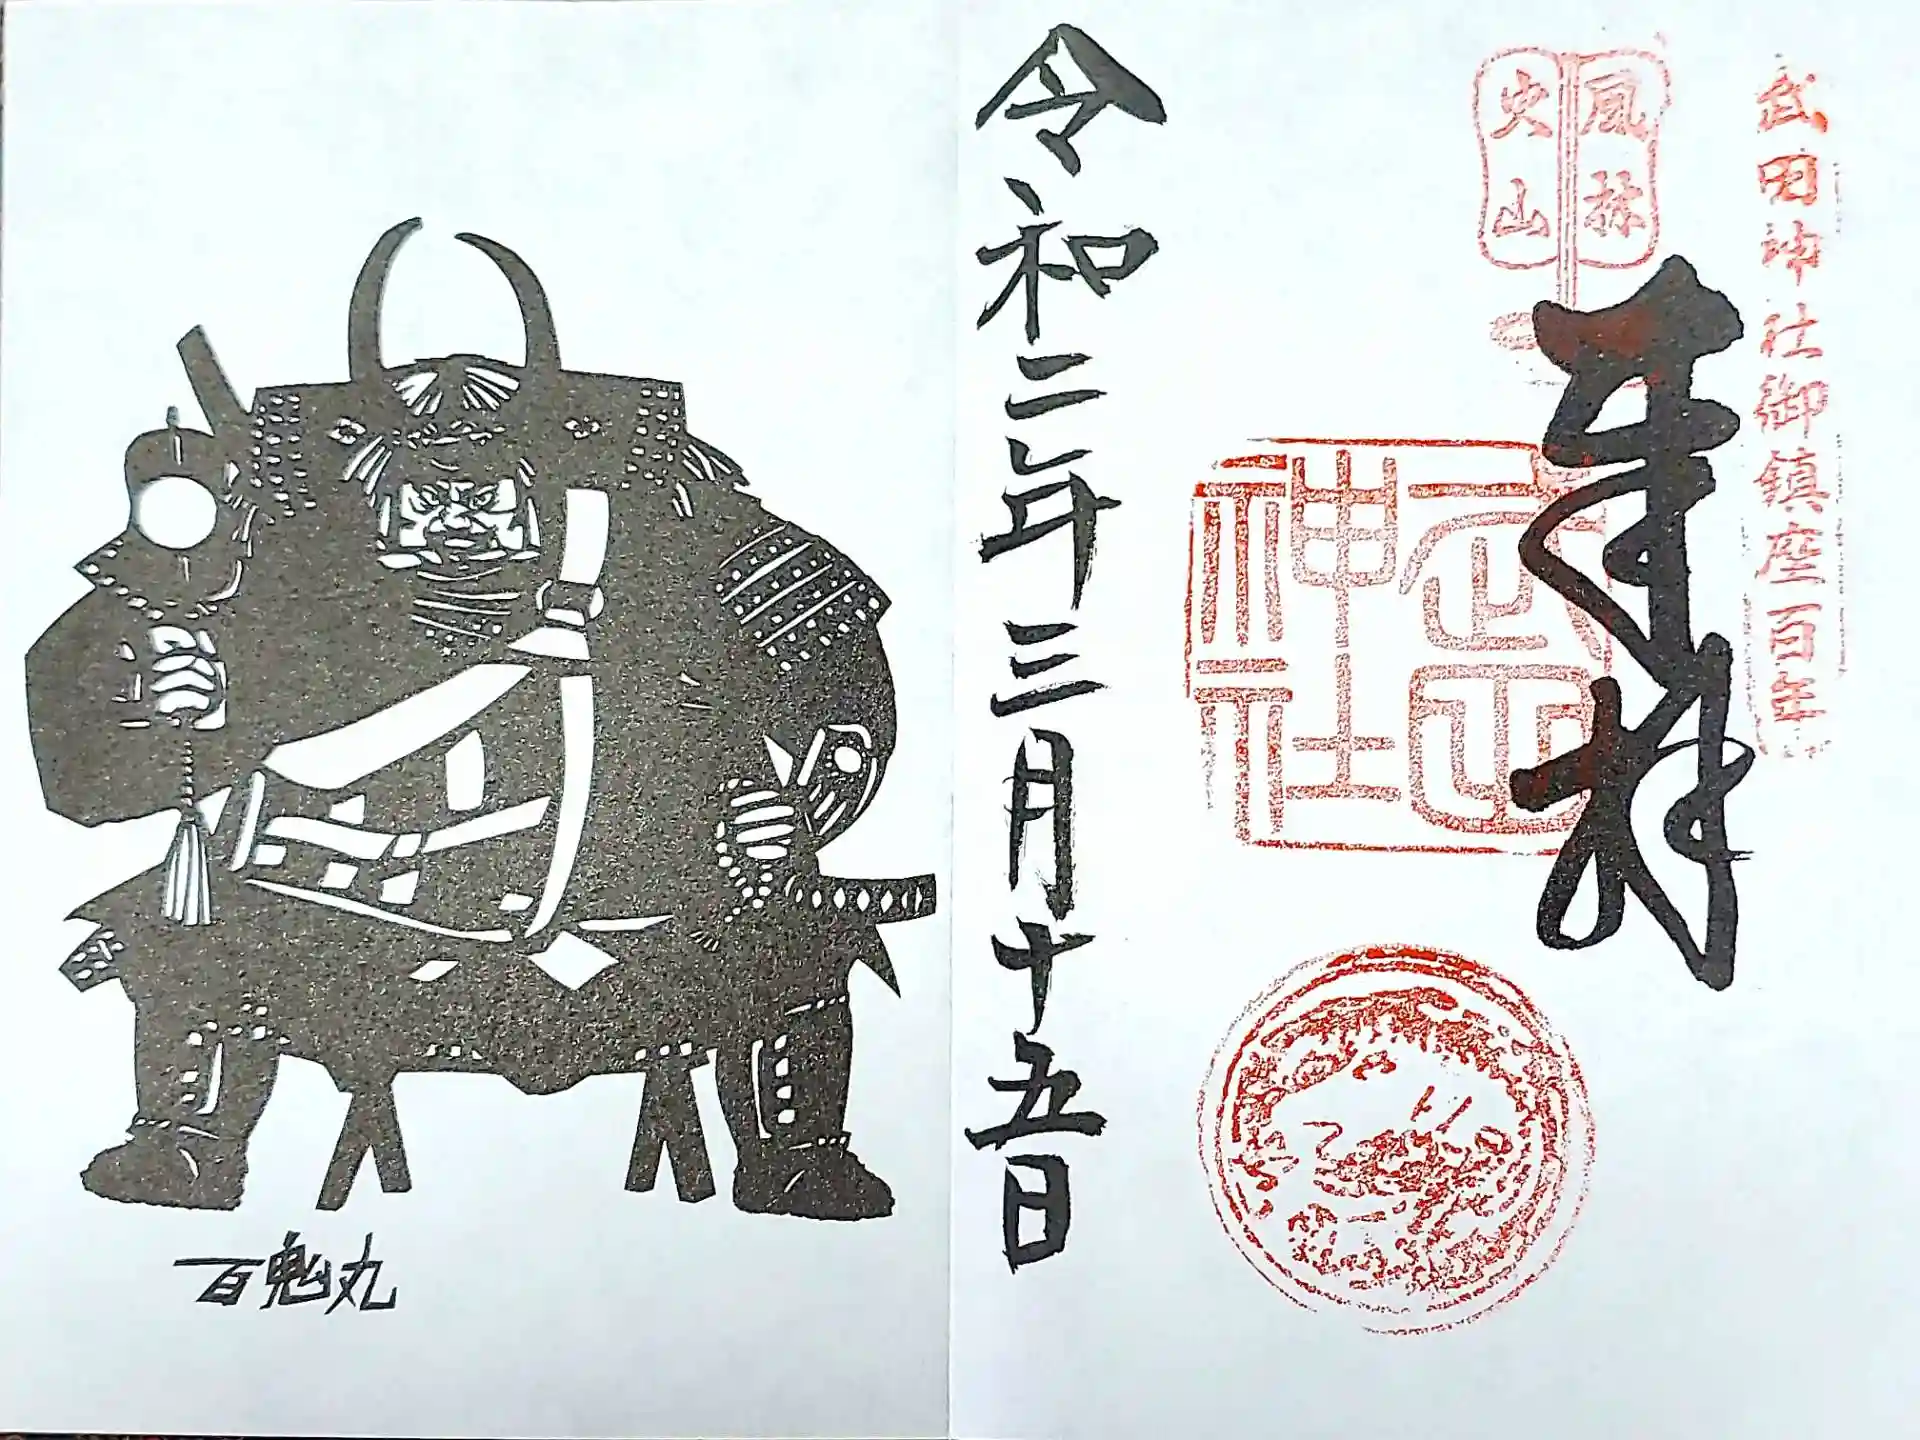 武田神社御鎮座百年
風林
火山
奉拝
武田
神社
令和二年三月十五日
百鬼丸